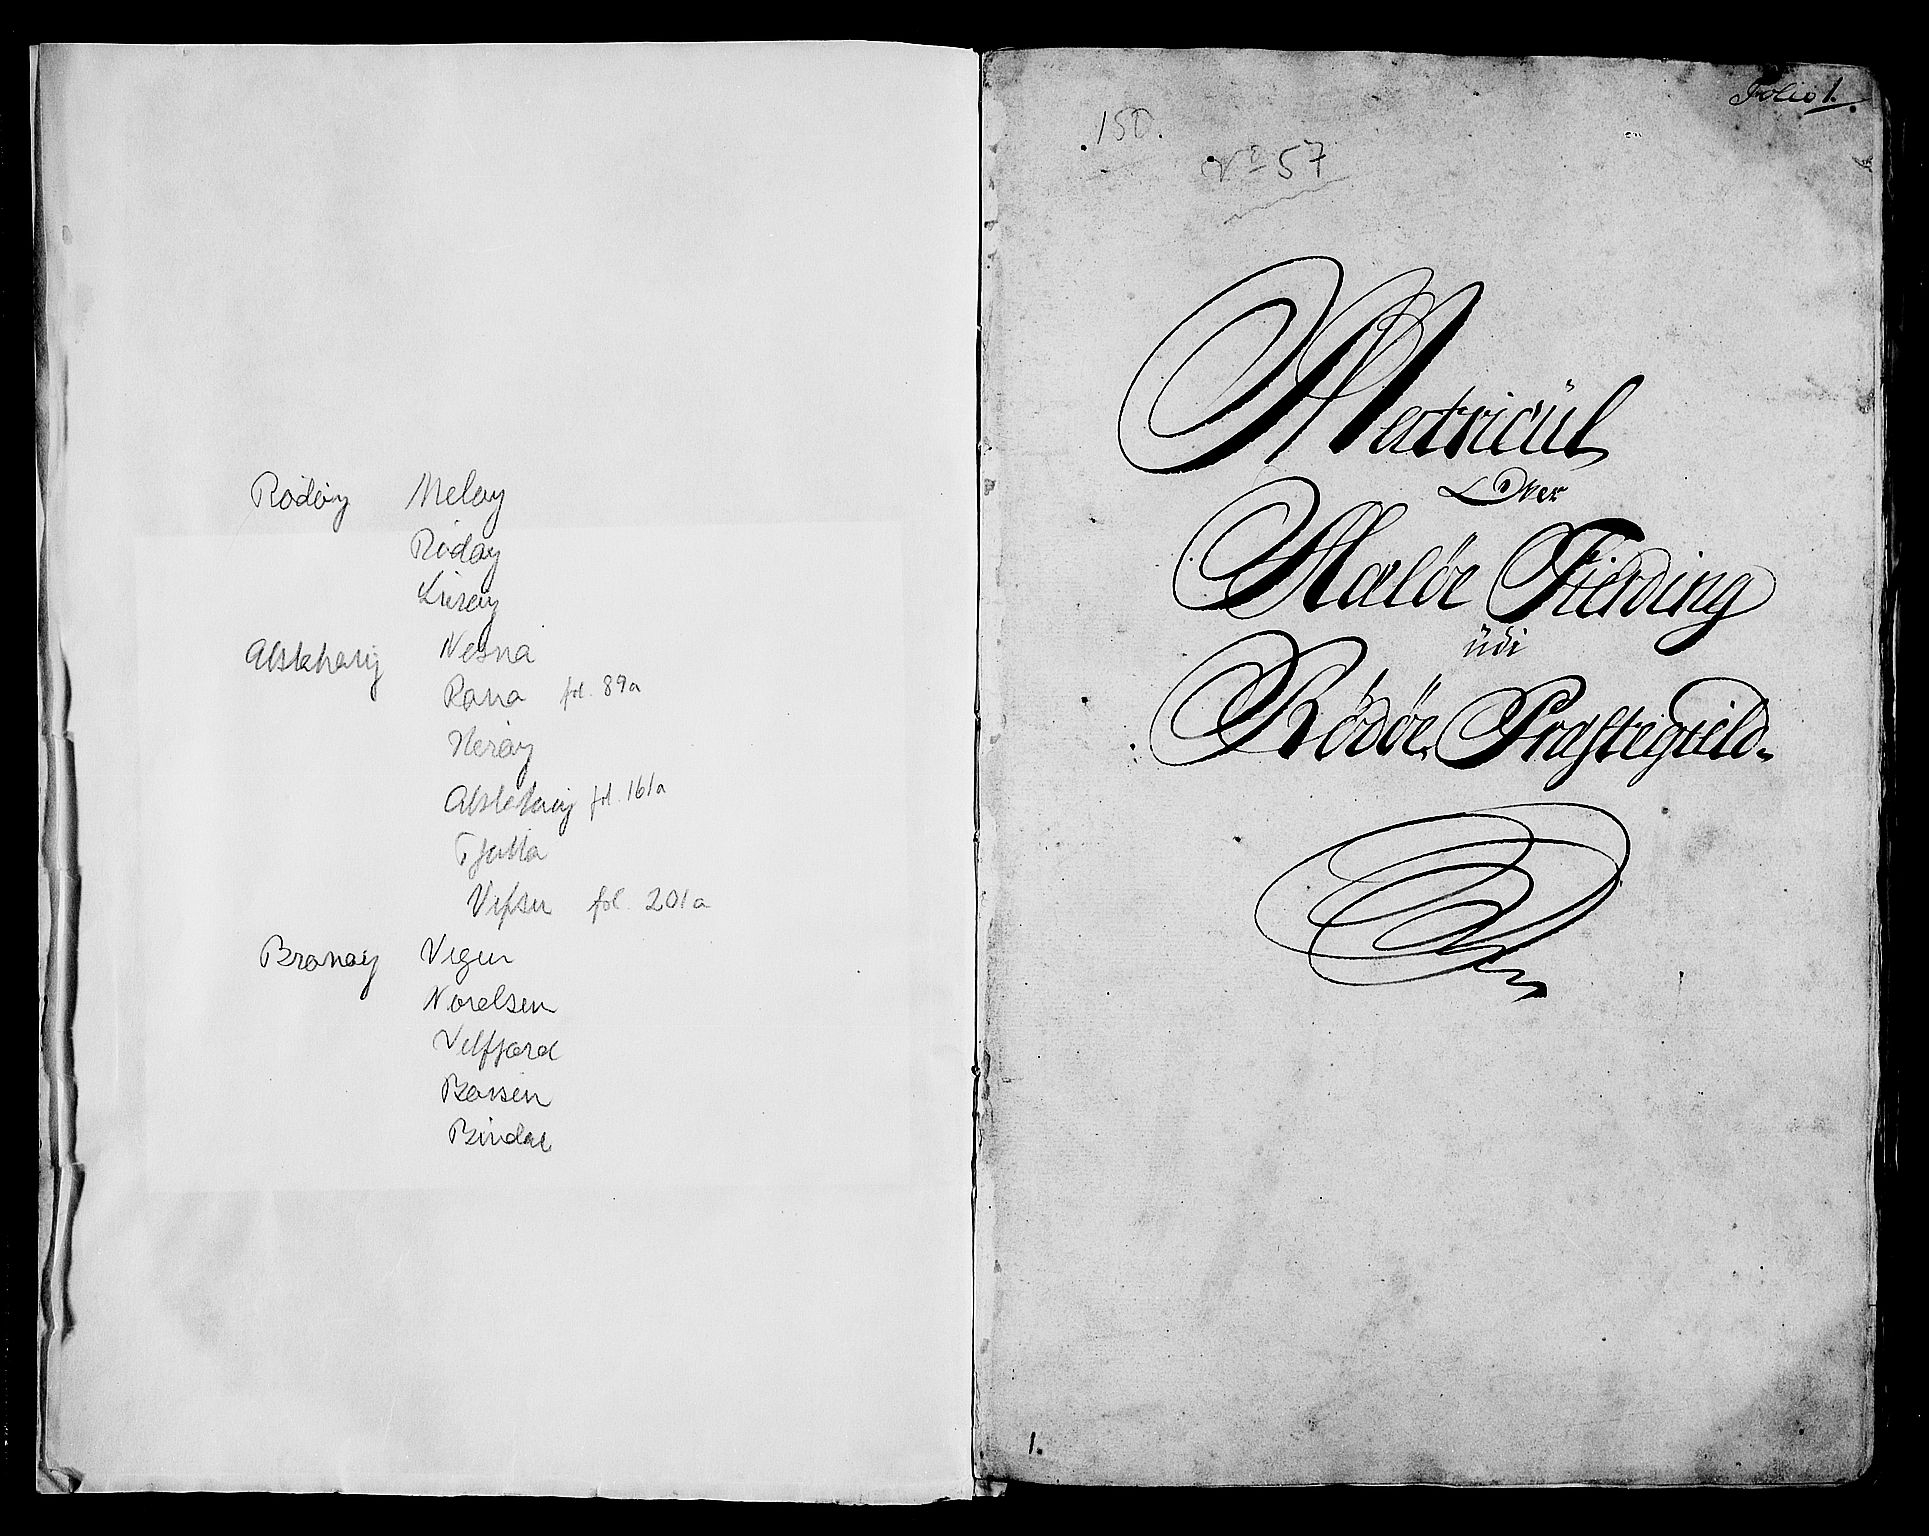 Rødøy Meløy
Rødøy
Lurøy
Alstahaug Nesna
Rana fol. 89a
Herøy
Alstahaug fol. 161a
Tjøtta
Vefsn fol. 201a
Brønøy Vegøy
Norelsen
Velfjord
Bønnen
Bindal
Folio 1.
150.
No 57
Matricül
Over
Mæløe Fierding
üdi
Rødøe Præstegield
1.